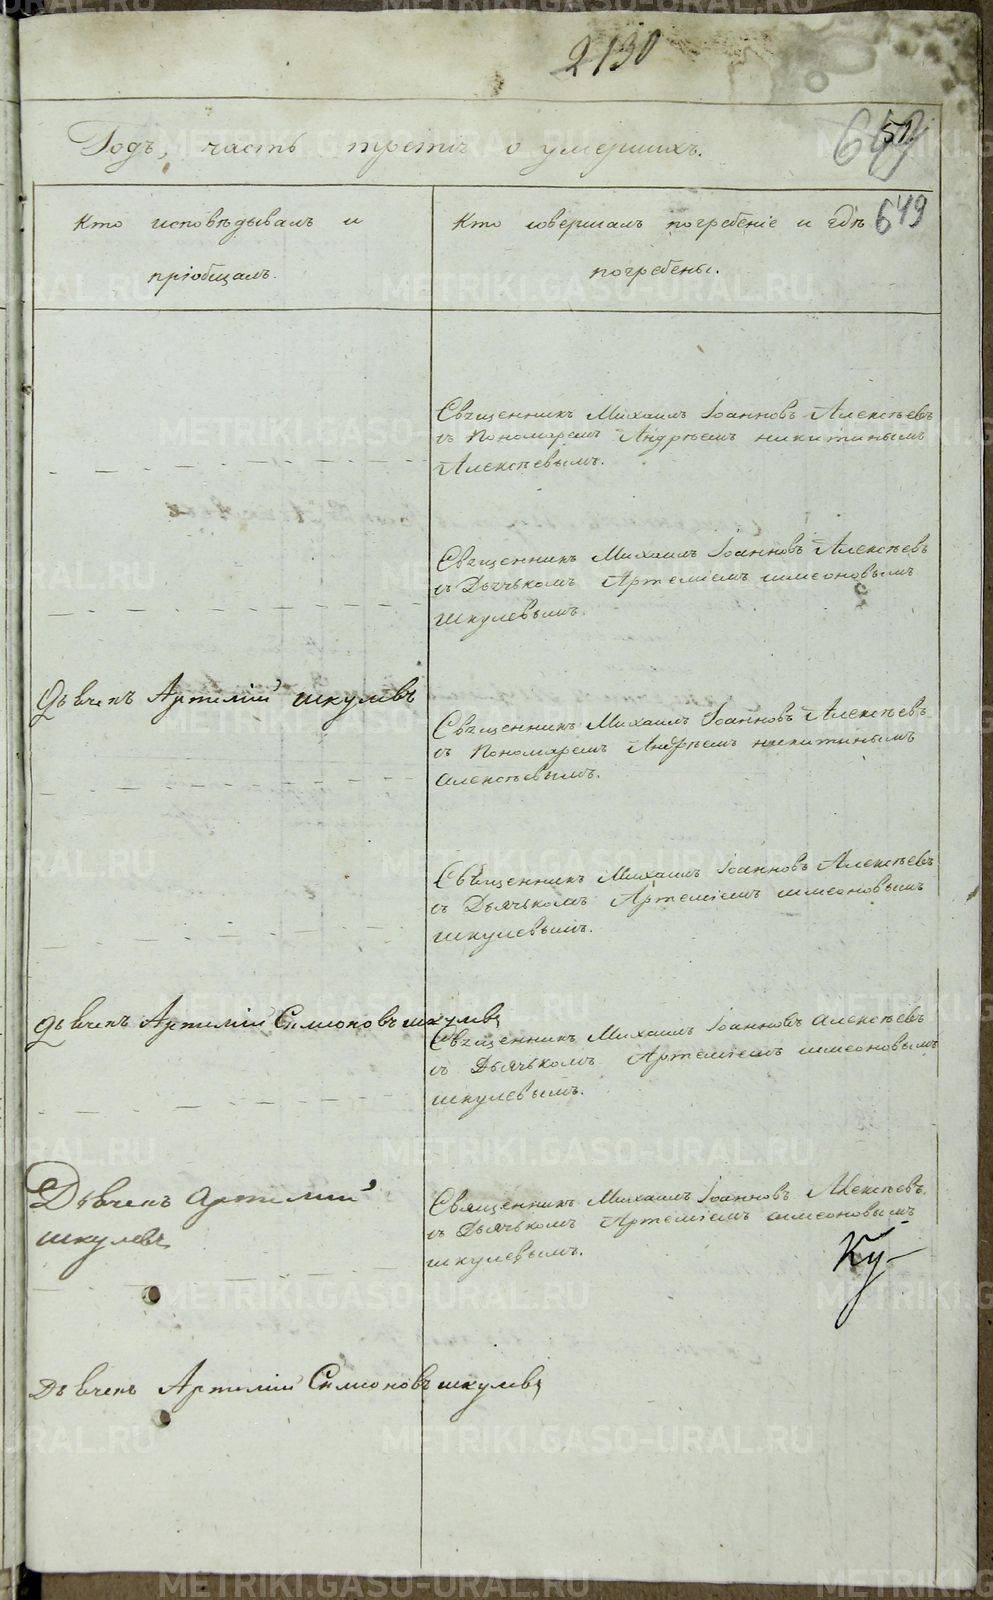 2130
Годъ, часть третiя о умершихъ.
51.
649
Кто исповѣдывалъ и
прiобщалъ.
Кто совершалъ погребенiе и гдѣ
погребены.
649
Священникъ Михаилъ Iоанновъ Алексѣевъ
съ Пономаремъ Андрѣемъ никитинымъ
Алексѣевымъ.
Священникъ Михаилъ Iоанновъ Алексѣевъ
съ Дьячькомъ Артемiемъ симеоновымъ
шкулевымъ.
Артемiй шкулевъ
Священникъ Михаилъ Iоанновъ Алексѣевъ
съ Пономаремъ Андрѣемъ никитинымъ
алексѣевымъ.
Священникъ Михаилъ Iоанновъ Алексѣевъ
съ Дьячькомъ Артемiемъ симеоновымъ
шкулевымъ.
Артемiй Симионовъ шкулевъ
Священникъ Михаилъ Iоанновъ алексѣевъ
съ Дьячькомъ Артемiемъ симеоновымъ
шкулевымъ.
Артемiй
шкулевъ
Священникъ Михаилъ Iоанновъ Алексѣевъ
съ Дьячькомъ Артемiемъ симеоновымъ
шкулевымъ.
Ку-
Артемiй Симионовъ шкулевъ
METRIKI.GASO-URAL.RU